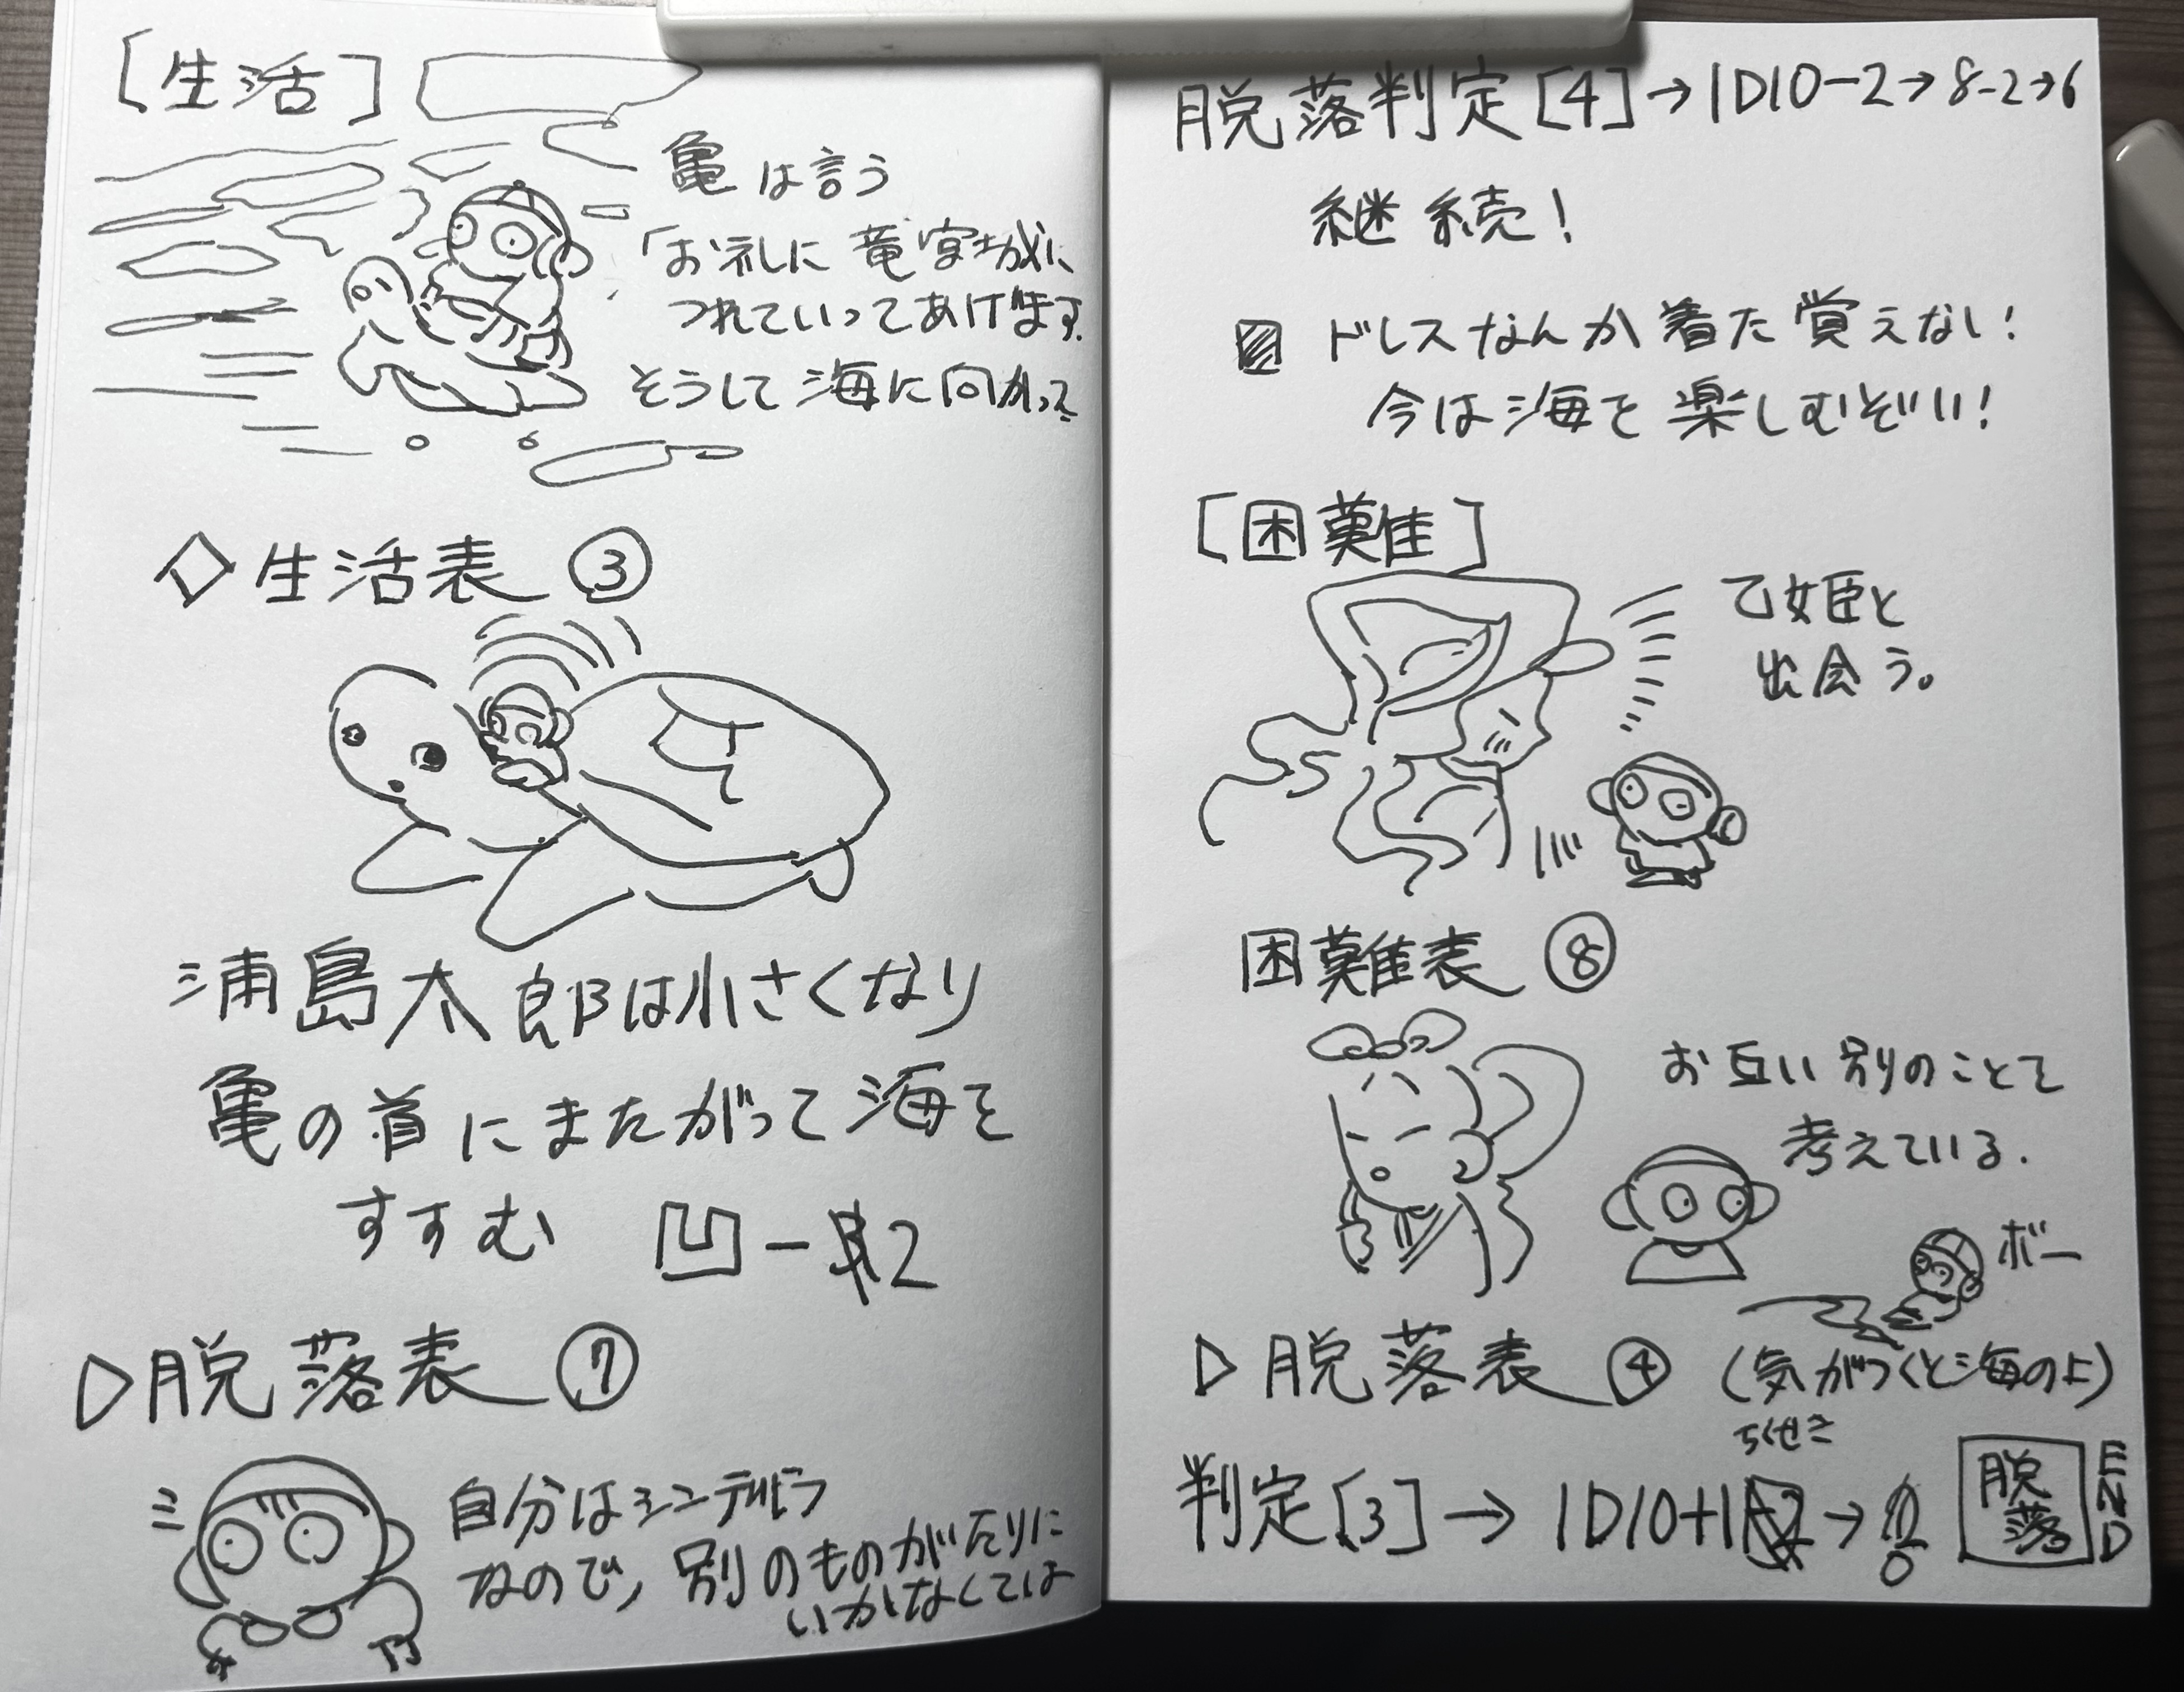 [生活]
亀は言う
「お礼に竜宮城に
つれていってあげます.
そうして海に向かって
◇生活表 ③
浦島太郎は小さくなり
亀の首にまたがって海を
すすむ 凹-2
▷脱落表 ⑦
自分はシンデレラ
なので、別のものがたりに
いかなくては
脱落判定[4]→1D10-2→8-2→6
継続!
ドレスなんか着た覚えない!
今は海を楽しむぞい!
[困難]
乙女姫と
出会う。
困難表 ⑧
お互い別のことを
考えている.
ボー
▷脱落表 ④ (気がつくと海の上)
ちくせき
判定[3]→ 1D10+1→
0
脱落
END